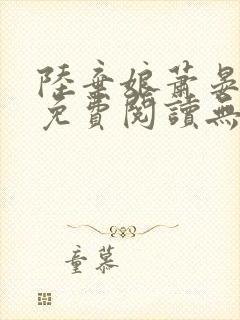 陸棄娘蕭晏
免費閱讀無
童慕